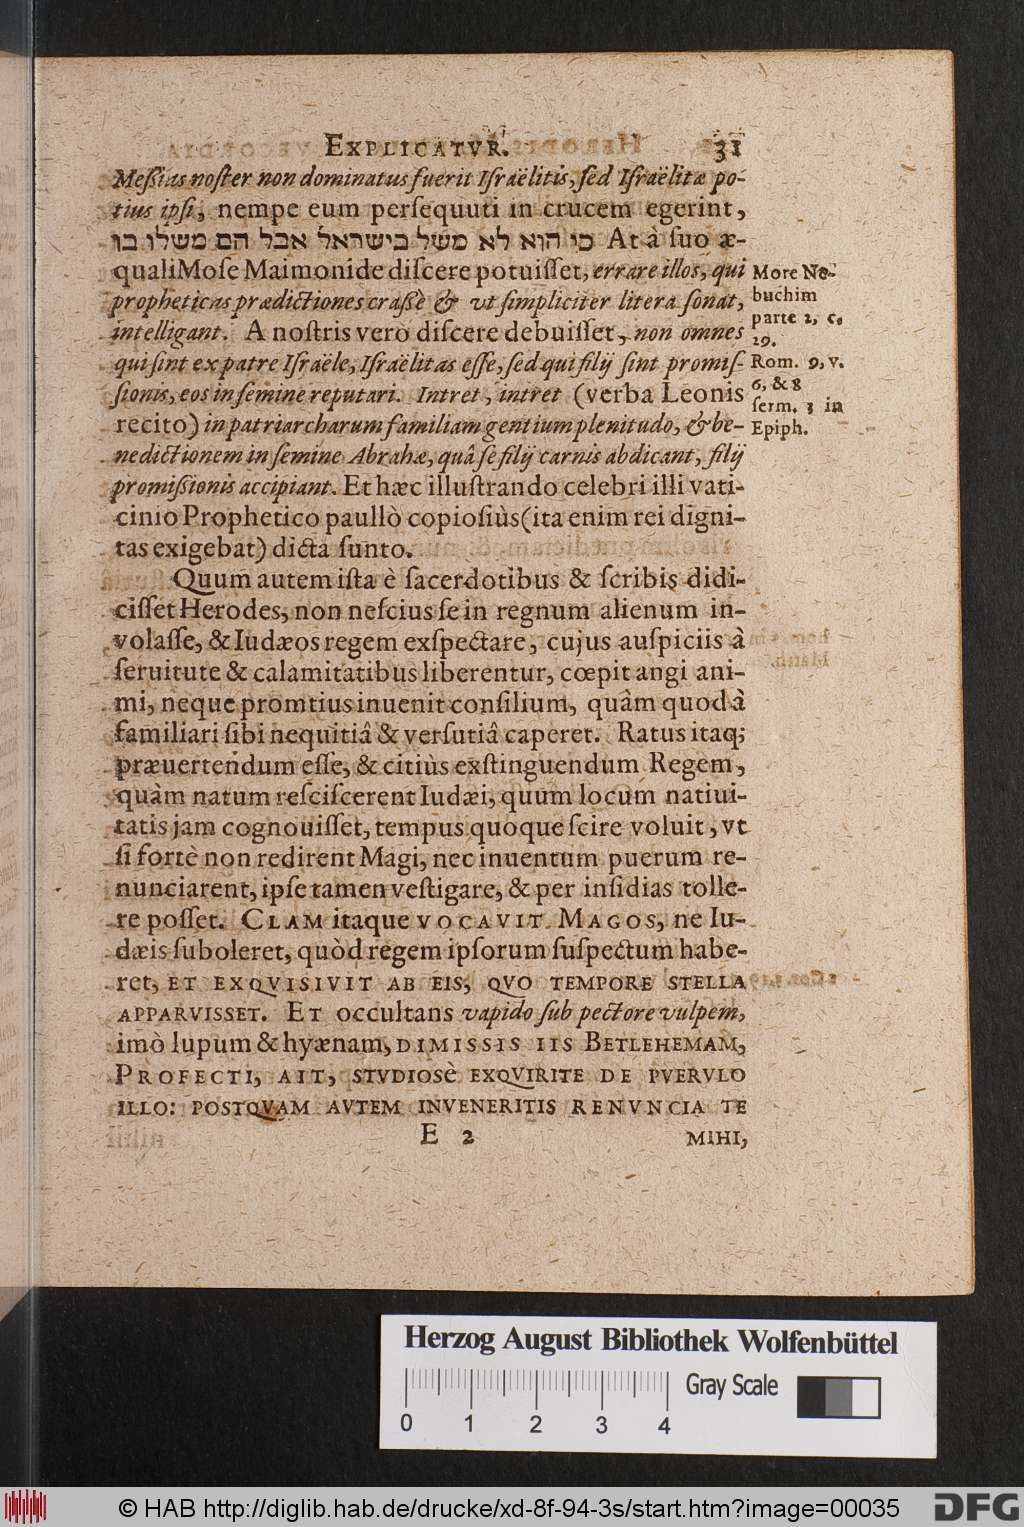 EXPLICATVR. 31
Meſſias noſter non dominatus fuerit Iſraëlitis, ſed Iſraëlitæ po-
tius ipſi, nempe eum perſequuti in crucem egerint,
כי הוא לא משל בישראל אבל הם משלו בו At à ſuo æ-
quali Moſe Maimonide diſcere potuiſſet, errare illos, qui
propheticas prædictiones craſſè & vt ſimpliciter litera ſonat,
intelligant. A noſtris verò diſcere debuiſſet, non omnes
qui ſint ex patre Iſraële, Iſraëlitas eſſe, ſed qui filij ſint promiſ-
ſionis, eos in ſemine reputari. Intret, intret (verba Leonis
recito) in patriarcharum familiam gentium plenitudo, & be-
nedictionem in ſemine Abrahæ, quâ ſe filij carnis abdicant, filij
promiſſionis accipiant. Et hæc illuſtrando celebri illi vati-
cinio Prophetico paullò copioſiùs (ita enim rei digni-
tas exigebat) dicta ſunto.
More Ne-
buchim
parte 2, c.
29.
Rom. 9, v.
6, & 8
ſerm. 3 in
Epiph.
Quum autem iſta è ſacerdotibus & ſcribis didi-
ciſſet Herodes, non neſcius ſe in regnum alienum in-
volaſſe, & Iudæos regem exſpectare, cujus auſpiciis à
ſeruitute & calamitatibus liberentur, cœpit angi ani-
mi, neque promtius inuenit conſilium, quàm quod à
familiari ſibi nequitiâ & verſutiâ caperet. Ratus itaq;
præuertendum eſſe, & citiùs exſtinguendum Regem,
quàm natum reſciſcerent Iudæi, quum locum natiui-
tatis jam cognouiſſet, tempus quoque ſcire voluit, vt
ſi fortè non redirent Magi, nec inuentum puerum re-
nunciarent, ipſe tamen veſtigare, & per inſidias tolle-
re poſſet. CLAM itaque VOCAVIT MAGOS, ne Iu-
dæis ſuboleret, quòd regem ipſorum ſuſpectum habe-
ret, ET EXQVISIVIT AB EIS, QVO TEMPORE STELLA
APPARVISSET. ET occultans vapido ſub pectore vulpem,
imò lupum & hyænam, DIMISSIS IIS BETLEHEMAM,
PROFECTI, AIT, STVDIOSÈ EXQVIRITE DE PVERVLO
ILLO: POSTQVAM AVTEM INVENERITIS RENVNCIA TE
E 2 MIHI,
Herzog August Bibliothek Wolfenbüttel
Gray Scale
0 1 2 3 4
© HAB http://diglib.hab.de/drucke/xd-8f-94-3s/start.htm?image=00035
DFG